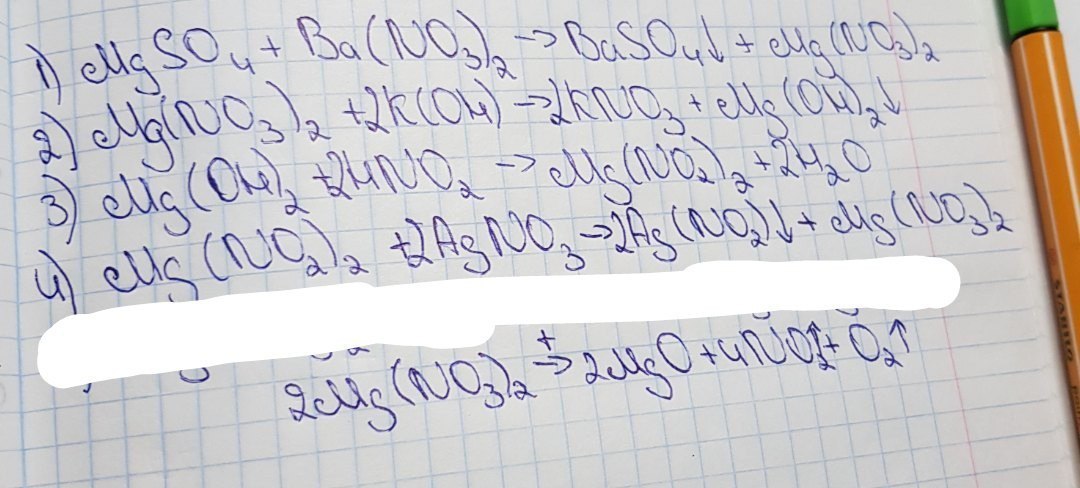 1) MgSO₄ + Ba(NO₃)₂ → BaSO₄↓ + Mg(NO₃)₂
2) Mg(NO₃)₂ + 2K(OH) → 2KNO₃ + Mg(OH)₂↓
3) Mg(OH)₂ + 2HNO₂ → Mg(NO₂)₂ + 2H₂O
4) Mg(NO₂)₂ + 2AgNO₃ → 2Ag(NO₂)↓ + Mg(NO₃)₂
2Mg(NO₃)₂ →ᵗ 2MgO + 4NO₂↑ + O₂↑